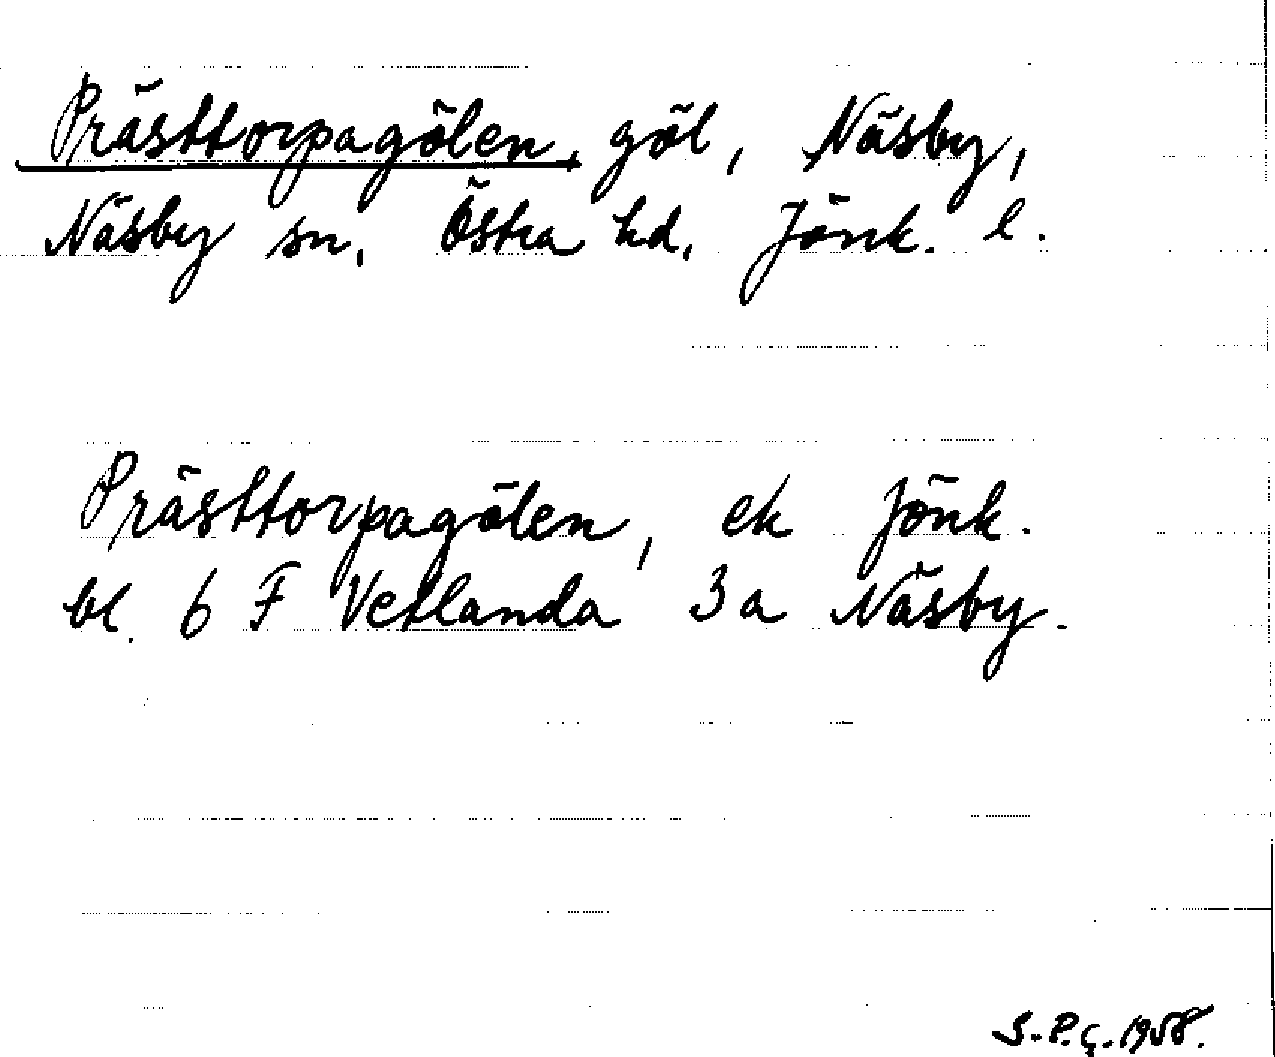 Prästtorpagölen, göl, Näsby,
Näsby sn, Östra hd, Jönk. l.
Prästtorpagölen, ek Jönk.
bl. 6 F Vetlanda 3 a Näsby.
S.P.Ç. 1958.